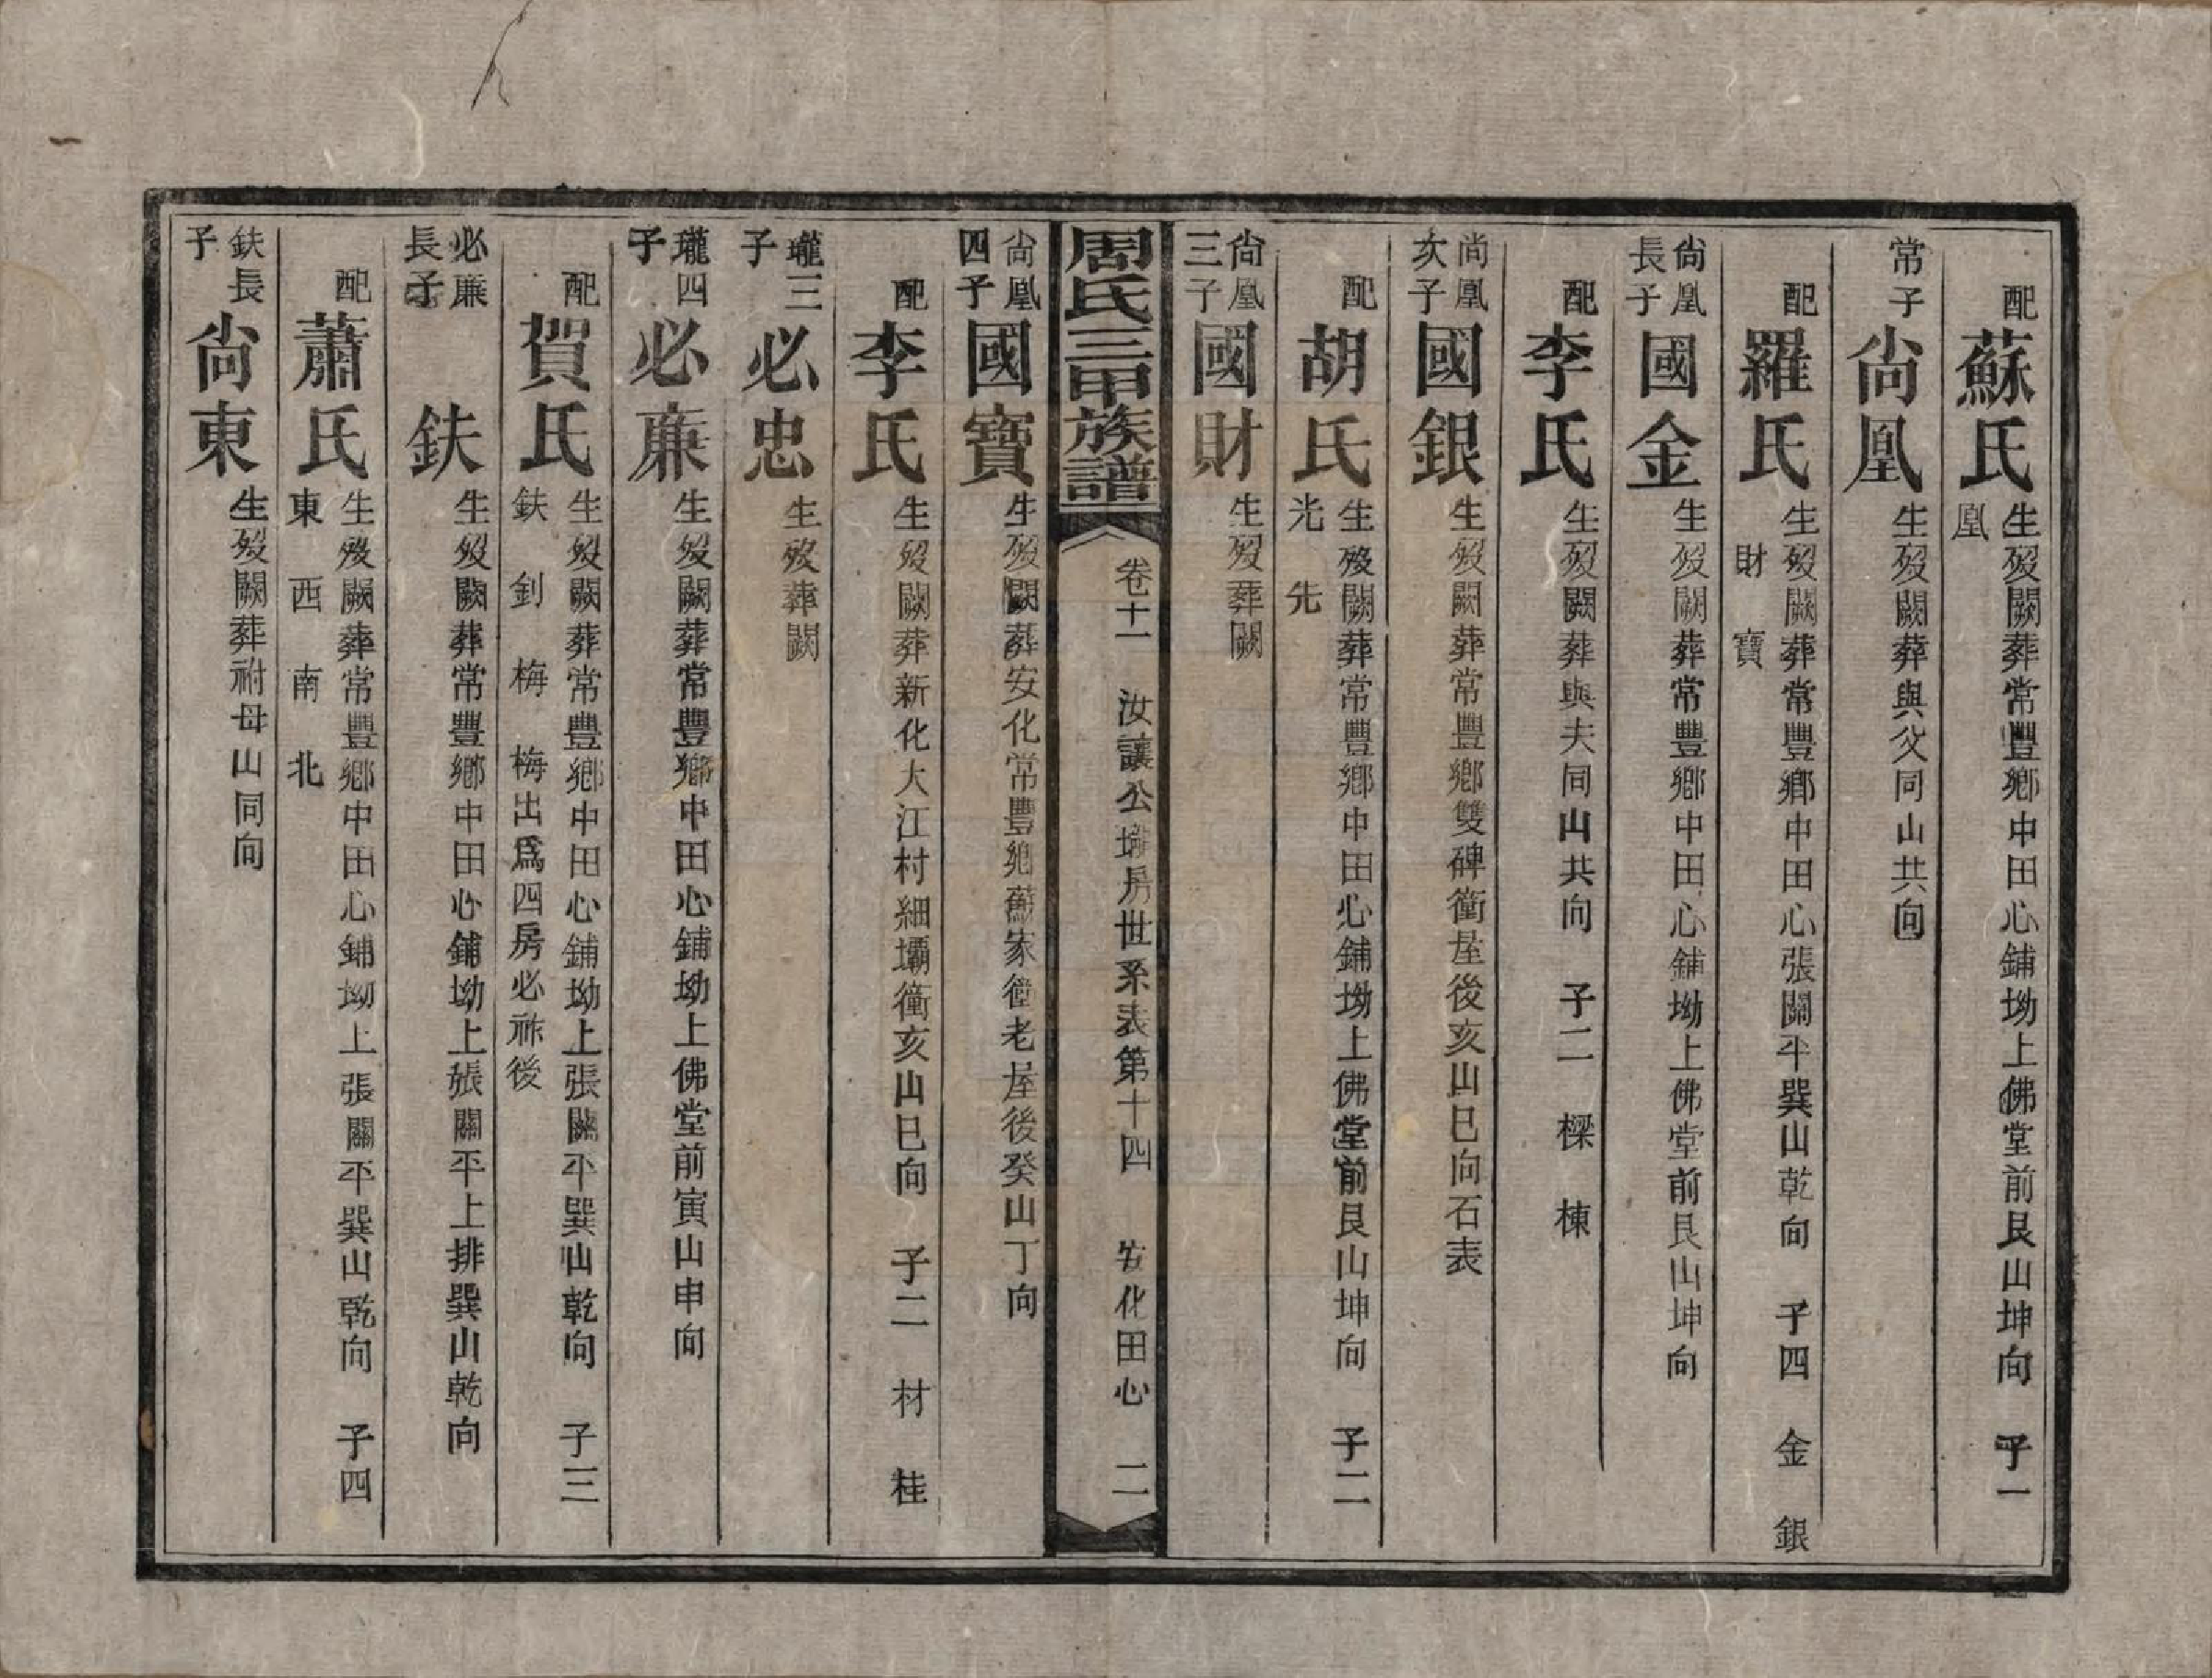 配蘇氏生歿闕葬常豐鄉中田心鋪坳上佛堂前艮山坤向　子一
凰
常子尙凰生歿闕葬與父同山共向
配羅氏生歿闕葬常豐鄉中田心張關平巽山乾向　子四　金　銀
財　寶
尙凰長子國金生歿闕葬常豐鄉中田心鋪坳上佛堂前艮山坤向
配李氏生歿闕葬與夫同山共向　子二　樑　棟
尙凰次子國銀生歿闕葬常豐鄉雙碑衝屋後亥山巳向石表
配胡氏生歿闕葬常豐鄉中田心鋪坳上佛堂前艮山坤向　子二
光　先
尙凰三子國財生歿葬闕
周氏三甲族譜　卷十一　汝讓公瓏房世系表第十四　安化田心　二
尙凰四子國寶生歿闕葬安化常豐鄉蘇家衝老屋後癸山丁向
配李氏生歿闕葬新化大江村細壩衝亥山巳向　子二　材　桂
瓏三子必忠生歿葬闕
瓏四子必廉生歿闕葬常豐鄉中田心鋪坳上佛堂前寅山申向
配賀氏生歿闕葬常豐鄉中田心鋪坳上張關平巽山乾向　子三
鈇　釗　梅　梅出爲四房必祚後
必廉長子鈇生歿闕葬常豐鄉中田心鋪坳上張關平上排巽山乾向
配蕭氏生歿闕葬常豐鄉中田心鋪坳上張關平巽山乾向　子四
東　西　南　北
鈇長子尙東生歿闕葬祔母山同向